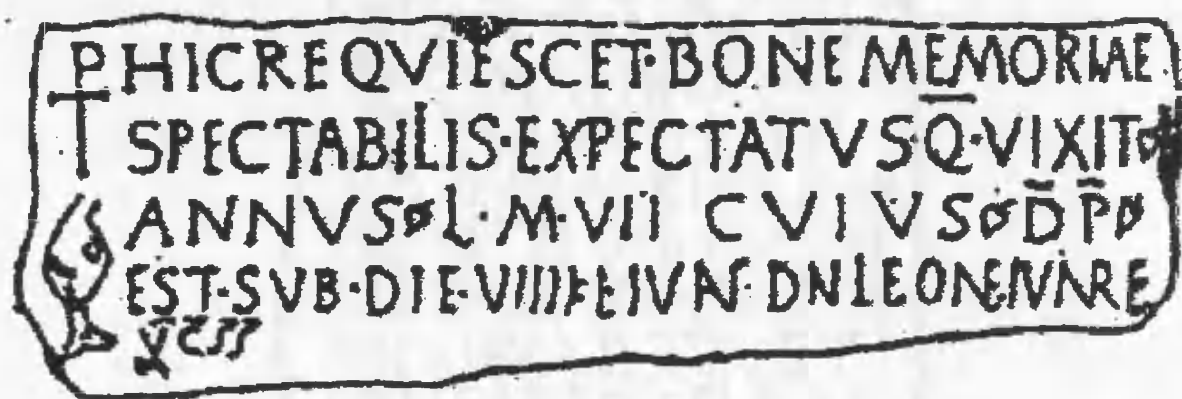 HIC REQVIESCET·BONE MEMORIAE
SPECTABILIS·EXPECTATVS·Q·VIXIT
ANNVS L·M·VII CVIVS D̄ P̄
EST·SVB·DIE·VIIII IVN· DN LEONE IVNRE